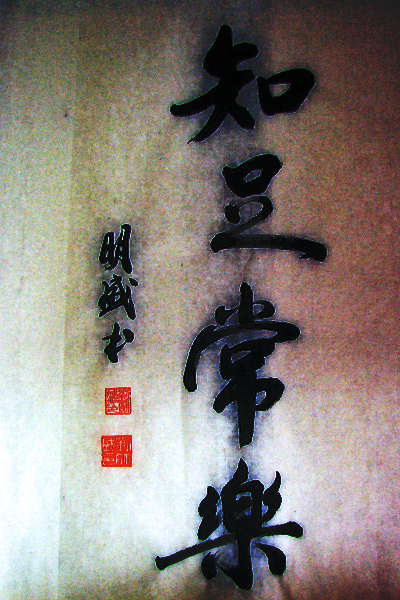 知足常樂
明盛书